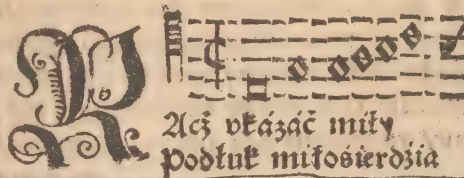 RAcż vkázáć miły
Podłuk miłosierdźia